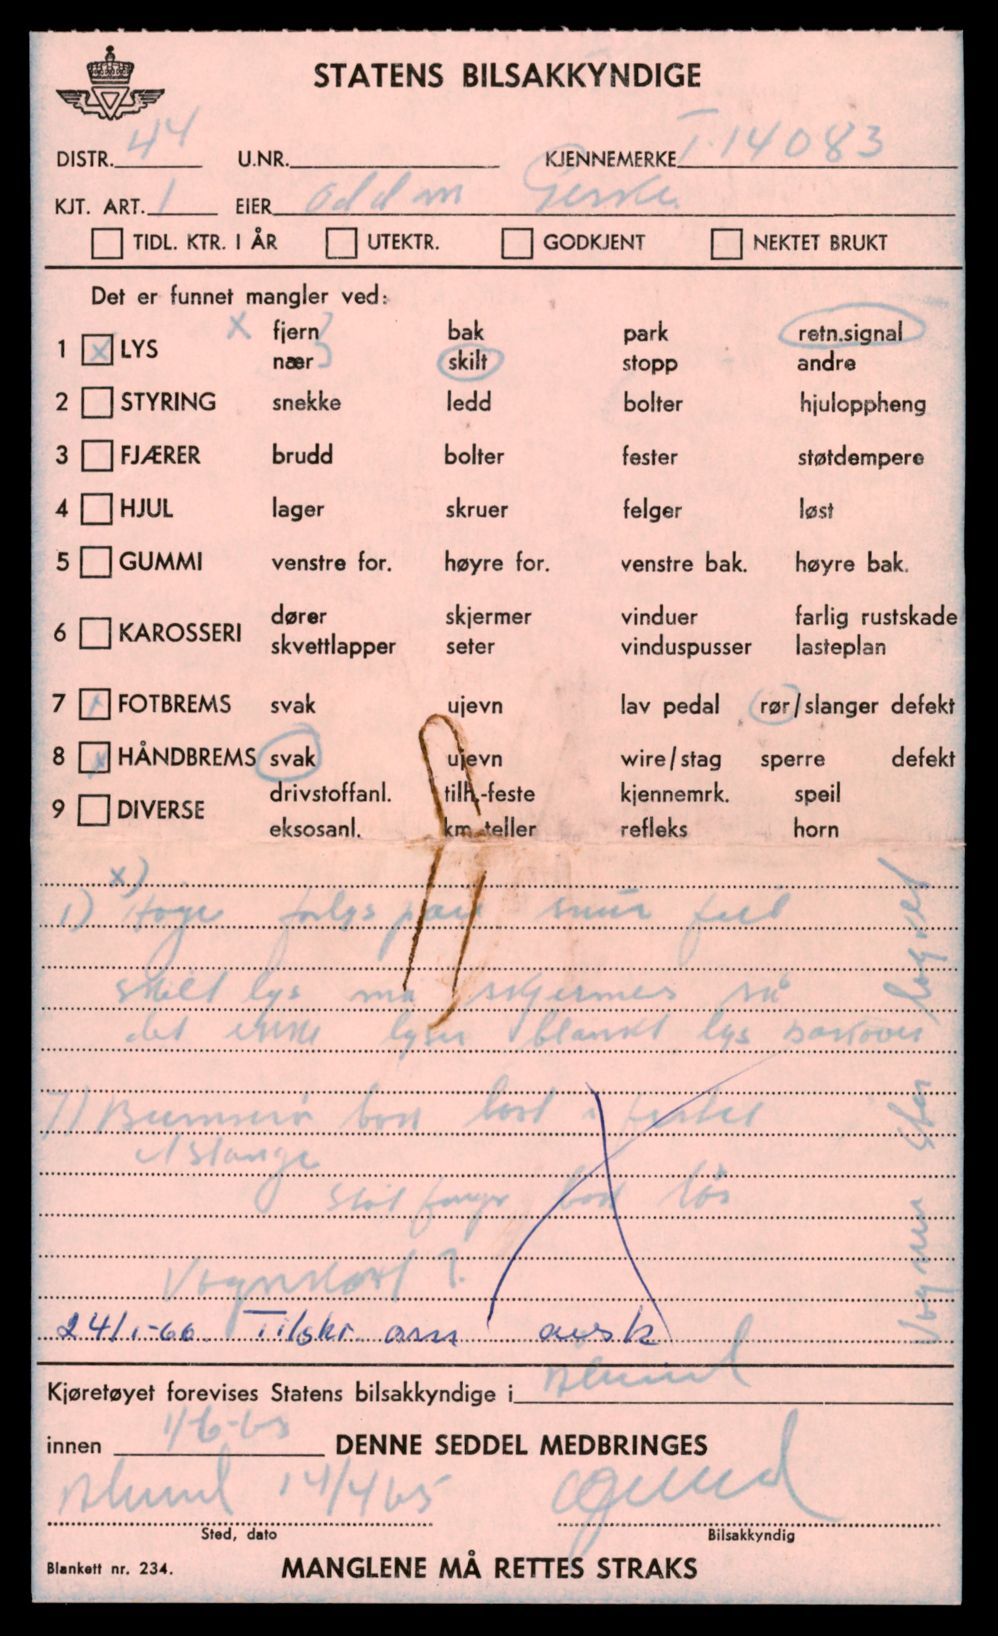 STATENS BILSAKKYNDIGE
DISTR. 44 U.NR. KJENNEMERKE T-14083
KJT. ART. 1 EIER Oddm
TIDL. KTR. I ÅR UTEKTR. GODKJENT NEKTET BRUKT
Det er funnet mangler ved:
1 x LYS x fjern bak park retn.signal
nær skilt stopp andre
2 STYRING snekke ledd bolter hjuloppheng
3 FJÆRER brudd bolter fester støtdempere
4 HJUL lager skruer felger løst
5 GUMMI venstre for. høyre for. venstre bak. høyre bak.
6 KAROSSERI dører skjermer vinduer farlig rustskade
skvettlapper seter vinduspusser lasteplan
7 FOTBREMS svak ujevn lav pedal rør/slanger defekt
8 x HÅNDBREMS svak ujevn wire/stag sperre defekt
9 DIVERSE drivstoffanl. tilh.-feste kjennemrk. speil
eksosanl. km.teller refleks horn
x)
1) feil
skilt lys må skjermes så
det ikke lyser blankt lys bakover
7) bak løst i festet
Støtfanger bak løs
Vognkort ?
Vognen
24/1-66 Tilskr. om avsk
Kjøretøyet forevises Statens bilsakkyndige i Ålesund
innen 1/6-65 DENNE SEDDEL MEDBRINGES
Ålesund 14/4 65
Sted, dato Bilsakkyndig
Blankett nr. 234. MANGLENE MÅ RETTES STRAKS